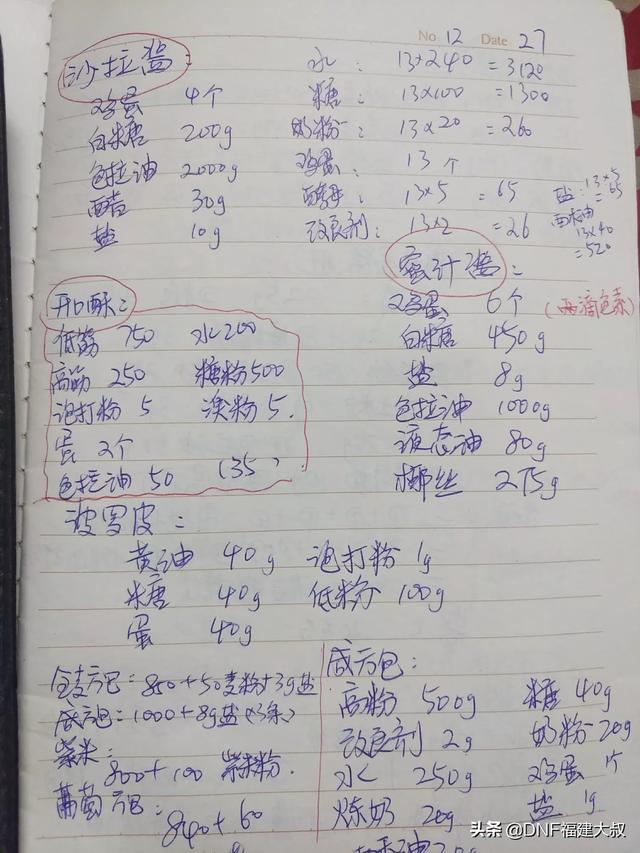 No 12 Date 27
沙拉酱:
鸡蛋 4个
白糖 200g
色拉油 2000g
醋 30g
盐 10g
水: 13×240 =3120
糖: 13×100 =1300
奶粉: 13×20 =260
鸡蛋: 13个
酵母: 13×5 =65
改良剂: 13×2 =26
盐: 13×5
=65
13×40
=520
开口酥:
低筋 750 水200
高筋 250 糖粉500
泡打粉 5 臭粉5.
蛋 2个
色拉油 50 (35)
蜜汁酱:
鸡蛋 6个 (两滴色素)
白糖 450g
盐 8g
色拉油 1000g
液态油 80g
椰丝 275g
波罗皮:
黄油 40g 泡打粉 1g
糖 40g 低粉 100g
蛋 40g
全麦方包=850+50麦粉+3g盐
咸方包=1000+8g盐(3条)
紫米:
800+100 紫米粉.
葡萄方包:
840+60
咸方包:
高粉 500g 糖 40g
改良剂 2g 奶粉 20g
水 250g 鸡蛋 1个
炼奶 20g 盐 1g
头条 @DNF福建大叔